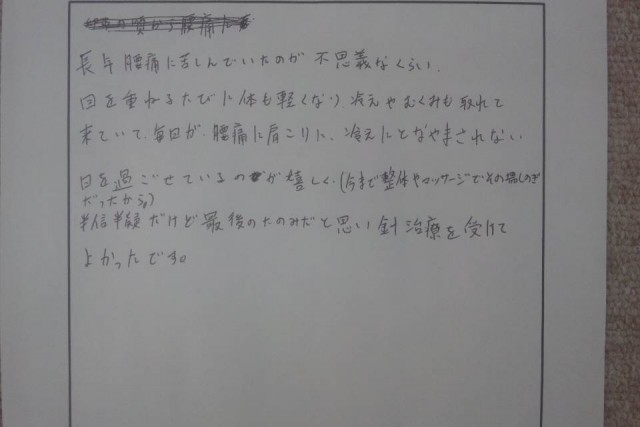 頃から腰痛だ
長年腰痛に苦しんでいたのが不思議なくらい、
回を重ねるたびに体も軽くなり、冷えやむくみも取れて
来ていて、毎日が、腰痛に肩こりに、冷えにとなやまされない
日を過ごせているのが嬉しく、(今まで整体やマッサージでその場しのぎ
だったから)
半信半疑だけど最後のたのみだと思い針治療を受けて
よかったです。